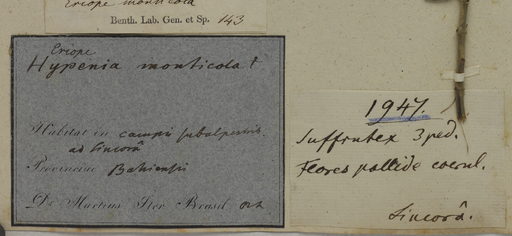 Eriope monticola
Benth. Lab. Gen. et Sp. 143
Eriope
Hypenia monticola †
Habitat in campis subalpestrib.
ad Sincorâ
Provinciae Bahiensis
De Martius Iter Brasil
1947.
Suffrutex 3 ped.
Flores pallide coerul.
Sincorâ.